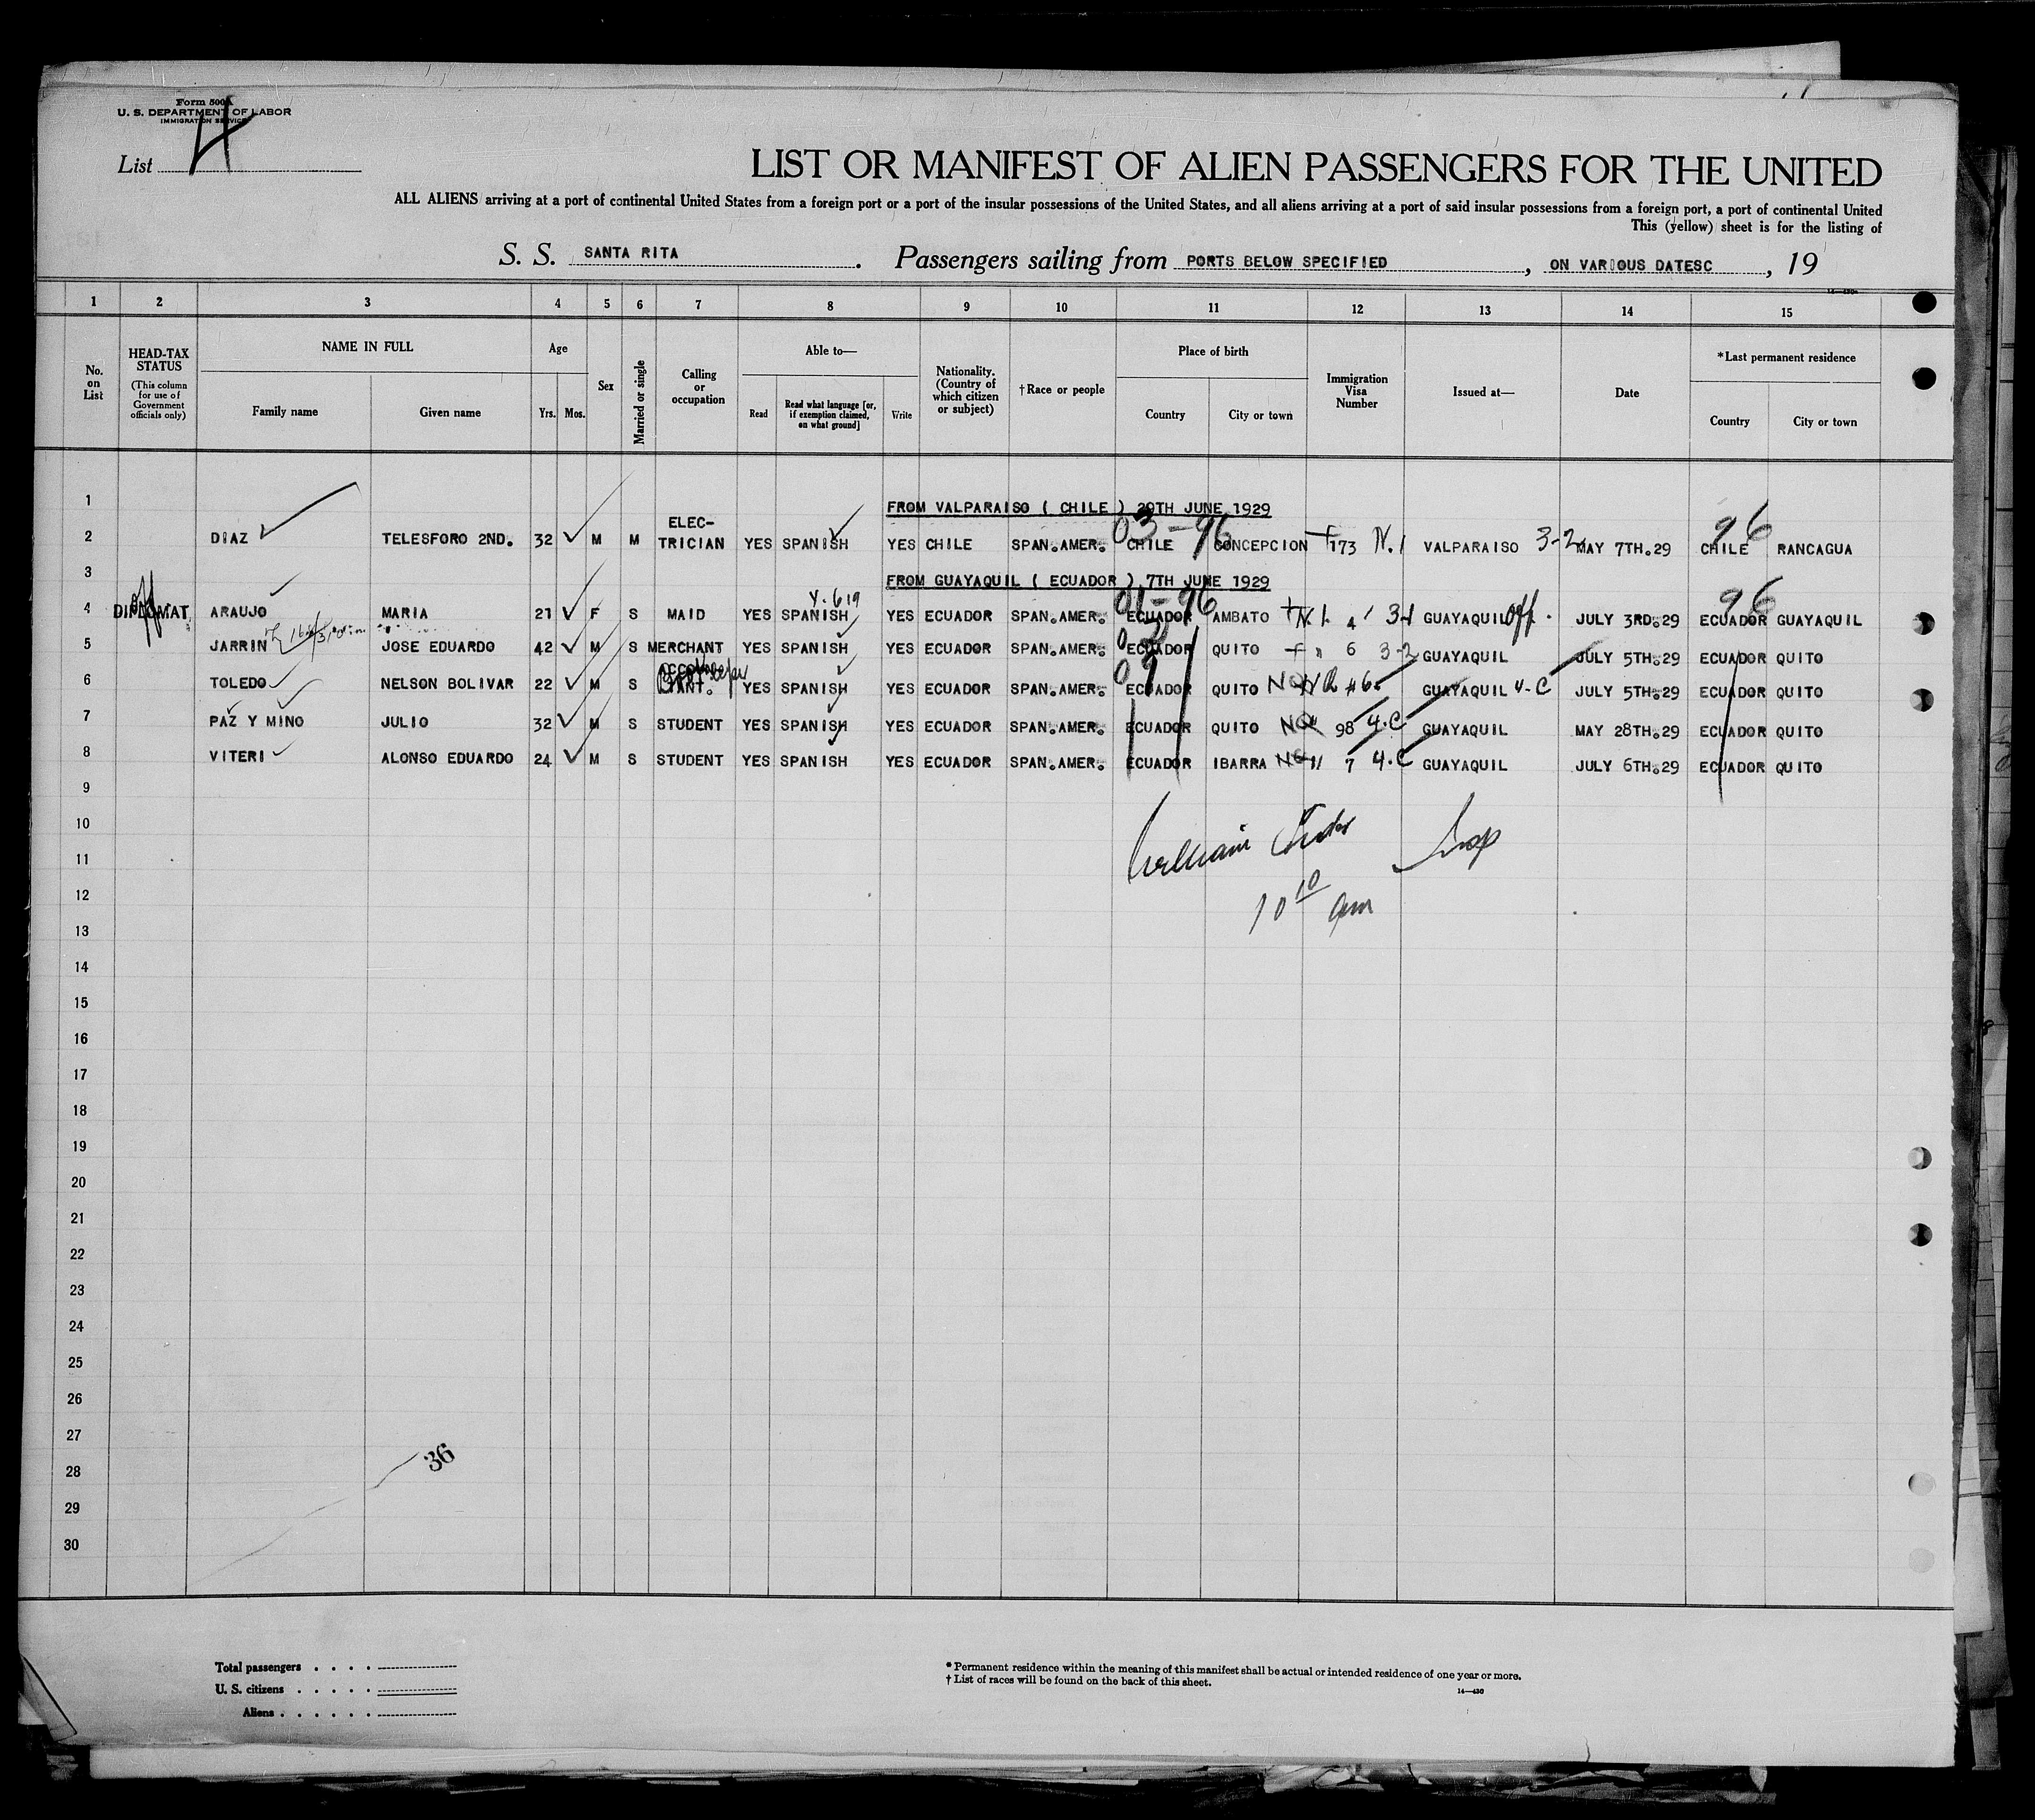 Form 500A
U. S. DEPARTMENT OF LABOR
IMMIGRATION SERVICE
List 4
LIST OR MANIFEST OF ALIEN PASSENGERS FOR THE UNITED
ALL ALIENS arriving at a port of continental United States from a foreign port or a port of the insular possessions of the United States, and all aliens arriving at a port of said insular possessions from a foreign port, a port of continental United
This (yellow) sheet is for the listing of
S. S. SANTA RITA. Passengers sailing from PORTS BELOW SPECIFIED, ON VARIOUS DATESC, 19
1 2 3 4 5 6 7 8 9 10 11 12 13 14 15
No. on List
HEAD-TAX STATUS (This column for use of Government officials only)
NAME IN FULL
Family name Given name
Age
Yrs. Mos.
Sex
Married or single
Calling or occupation
Able to—
Read Read what language [or, if exemption claimed, on what ground] Write
Nationality. (Country of which citizen or subject)
†Race or people
Place of birth
Country City or town
Immigration Visa Number
Issued at—
Date
*Last permanent residence
Country City or town
1 FROM VALPARAISO ( CHILE ) 29TH JUNE 1929
2 DIAZ TELESFORO 2ND. 32 M M ELEC-TRICIAN YES SPANISH YES CHILE SPAN.AMER. 03-96 CHILE CONCEPCION 173 N.1 VALPARAISO 3-2 MAY 7TH.29 96 CHILE RANCAGUA
3 FROM GUAYAQUIL ( ECUADOR ) 7TH JUNE 1929
4 DIPLOMAT ARAUJO MARIA 21 F S MAID YES SPANISH YES ECUADOR SPAN.AMER. 01-96 ECUADOR AMBATO 4 3-1 GUAYAQUIL Off. JULY 3RD.29 96 ECUADOR GUAYAQUIL
5 JARRIN JOSE EDUARDO 42 M S MERCHANT YES SPANISH YES ECUADOR SPAN.AMER. ECUADOR QUITO 6 3-2 GUAYAQUIL JULY 5TH.29 ECUADOR QUITO
6 TOLEDO NELSON BOLIVAR 22 M S YES SPANISH YES ECUADOR SPAN.AMER. ECUADOR QUITO NQ GUAYAQUIL 4-C JULY 5TH.29 ECUADOR QUITO
7 PAZ Y MINO JULIO 32 M S STUDENT YES SPANISH YES ECUADOR SPAN.AMER. ECUADOR QUITO NQ 98 4.C GUAYAQUIL MAY 28TH.29 ECUADOR QUITO
8 VITERI ALONSO EDUARDO 24 M S STUDENT YES SPANISH YES ECUADOR SPAN.AMER. ECUADOR IBARRA NQ 7 4.C GUAYAQUIL JULY 6TH.29 ECUADOR QUITO
9
10
11 William Insp
12
13 10 10 am
14
15
16
17
18
19
20
21
22
23
24
25
26
27
28 36
29
30
Total passengers . . . .
U. S. citizens . . . . .
Aliens . . . . . .
* Permanent residence within the meaning of this manifest shall be actual or intended residence of one year or more.
† List of races will be found on the back of this sheet.
14—430